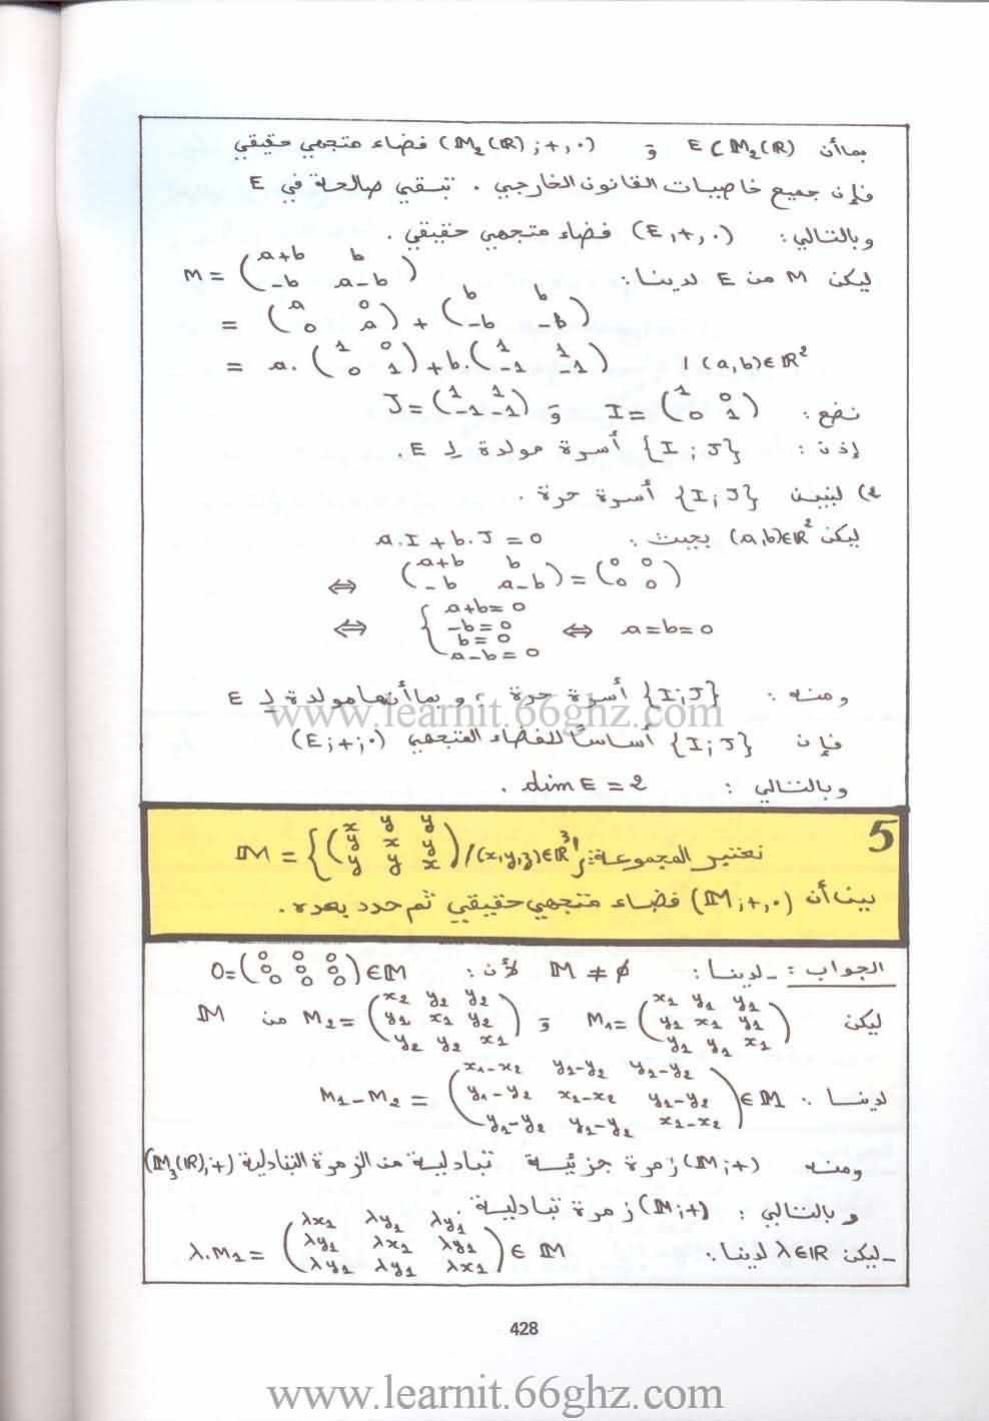 بما أن E⊂M₂(ℝ) و (M₂(ℝ);+,·) فضاء متجهي حقيقي
فإن جميع خاصيات القانون الخارجي · تبقى صالحة في E
وبالتالي: (E,+,·) فضاء متجهي حقيقي.
ليكن M من E لدينا: M = (a+b b ; -b a-b)
= (a 0 ; 0 a) + (b b ; -b -b)
= a.(1 0 ; 0 1) + b.(1 1 ; -1 -1) / (a,b)∈ℝ²
نضع: I = (1 0 ; 0 1) و J = (1 1 ; -1 -1)
إذن: {I ; J} أسرة مولدة لـ E.
2) لنبين {I;J} أسرة حرة.
ليكن (a,b)∈ℝ² بحيث: a.I + b.J = 0
⇔ (a+b b ; -b a-b) = (0 0 ; 0 0)
⇔ { a+b=0 ; -b=0 ; b=0 ; a-b=0 ⇔ a=b=0
ومنه: {I;J} أسرة حرة ; و بما أنها مولدة لـ E
www.learnit.66ghz.com
فإن {I;J} أساسا للفضاء المتجهي (E;+;·)
وبالتالي: dim E = 2.
5
نعتبر المجموعة: 𝕄 = {(x y y ; y x y ; y y x) / (x,y,z)∈ℝ³}
بين أن (𝕄;+,·) فضاء متجهي حقيقي ثم حدد بعده.
الجواب: - لدينا: 𝕄 ≠ ∅ لأن: 0 = (0 0 0 ; 0 0 0 ; 0 0 0) ∈ 𝕄
ليكن M₁ = (x₁ y₁ y₁ ; y₁ x₁ y₁ ; y₁ y₁ x₁) و M₂ = (x₂ y₂ y₂ ; y₂ x₂ y₂ ; y₂ y₂ x₂) من 𝕄
لدينا: M₁-M₂ = (x₁-x₂ y₁-y₂ y₁-y₂ ; y₁-y₂ x₁-x₂ y₁-y₂ ; y₁-y₂ y₁-y₂ x₁-x₂) ∈ 𝕄
ومنه (𝕄;+) زمرة جزئية تبادلية من الزمرة التبادلية (M₃(ℝ);+)
و بالتالي: (𝕄;+) زمرة تبادلية.
- ليكن λ∈ℝ لدينا: λ.M₁ = (λx₁ λy₁ λy₁ ; λy₁ λx₁ λy₁ ; λy₁ λy₁ λx₁) ∈ 𝕄
428
www.learnit.66ghz.com